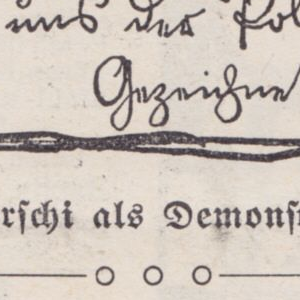 uns der Pol
Gezeichne
rschi als Demons